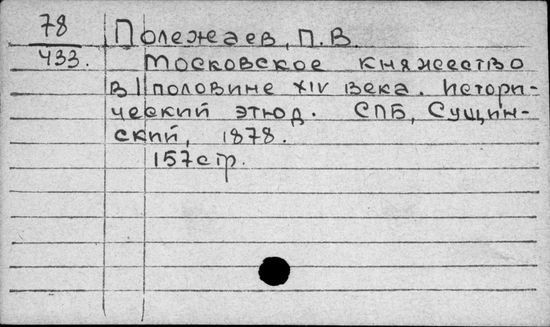 78 Полежаев, П.В.
433. Московское княжество
в I половине XIV века. Истори-
ческий этюд. СПБ, Сущин-
ский, 1878.
157стр.